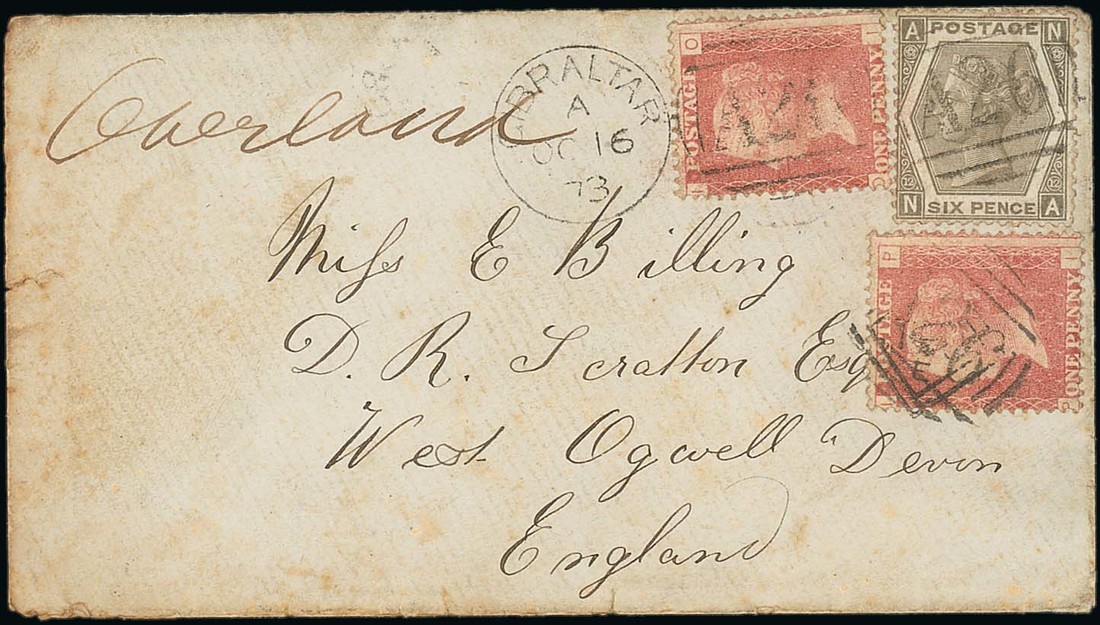 Overland
GIBRALTAR
A
OC 16
73
POSTAGE
ONE PENNY
O I
A26
A POSTAGE N
12 12
N SIX PENCE A
A26
Miss E Billing
D. R. Scratton Esq
West Ogwell Devon
England
P I
POSTAGE
ONE PENNY